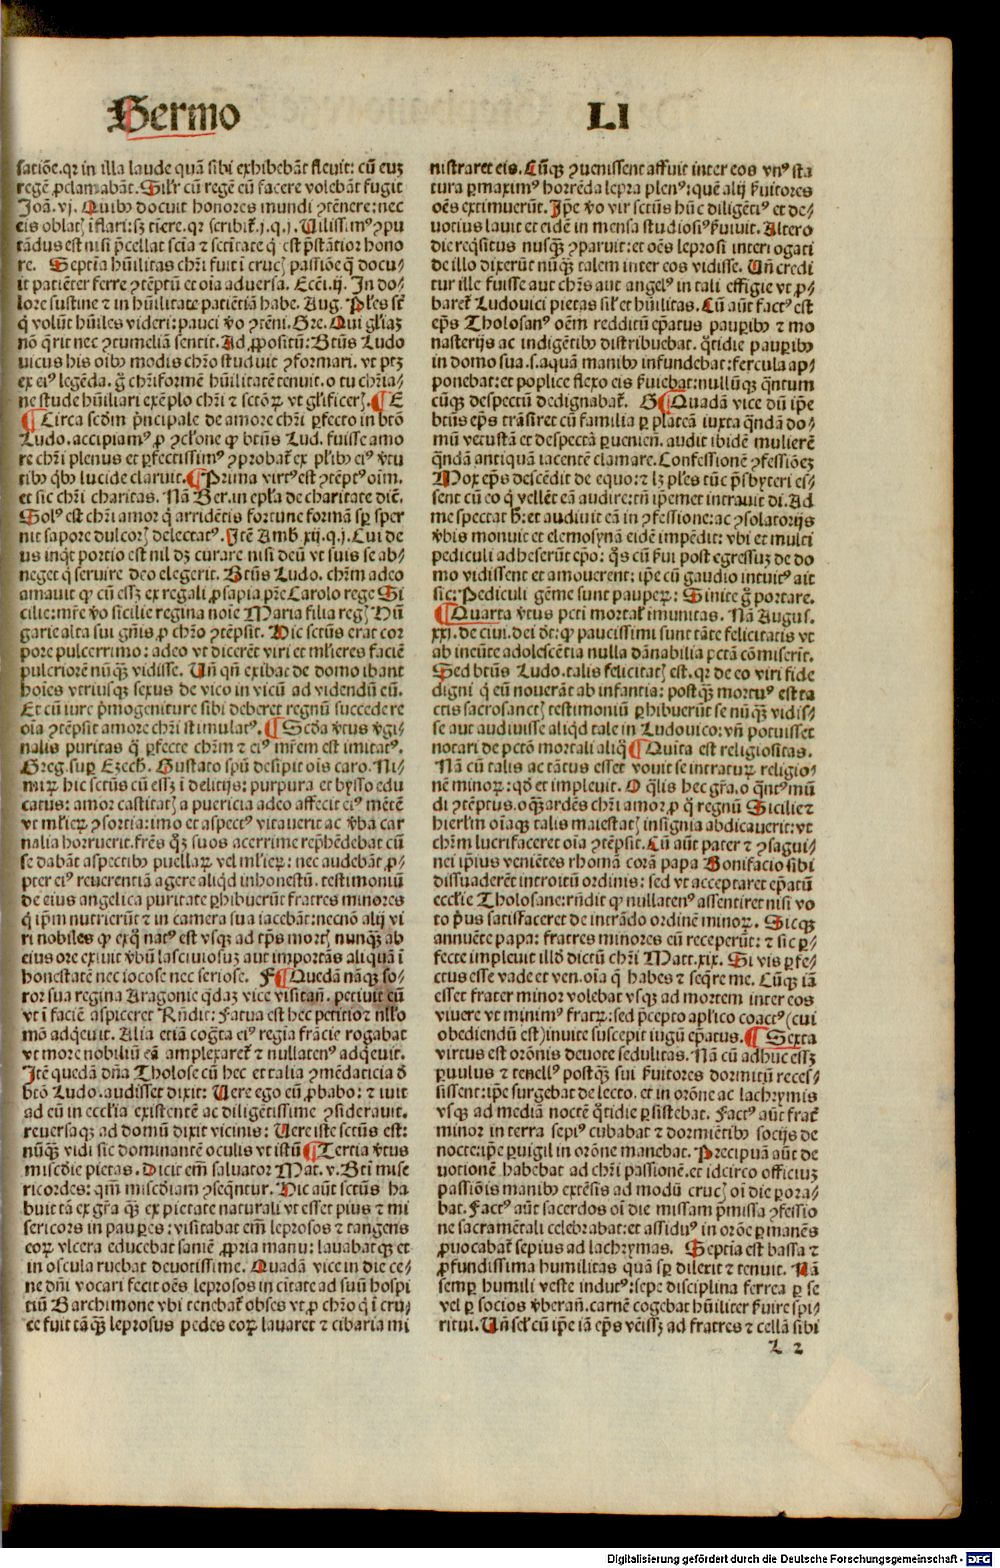 Sermo
LI
satiōe. qr in illa laude quā sibi exhibebāt fleuit: cū euʒ
regē ꝓclamabāt. Sil'r cū regē eū facere volebāt fugit
Joā. vj. Quibꝰ docuit honores mundi ꝯtēnere: nec
eis oblatꝭ īflari: sꝫ tīere. qr scribit᷑. j. q. j. Uilissimꝰ ꝯpu
tādus est nisi p̄cellat scīa ⁊ sctītate q̇ est p̄stātior hono
re. Septīa hūilitas chr̄i fuit ī cruc̄ꝭ passiōe q̄ docu⸗
it patiēter ferre ꝯtēptū et oīa aduersa. Ecc̄i. ij. In do⸗
lore sustine ⁊ in hūilitate patiētiā habe. Aug. Pl̄es st̄
q̇ volūt hūiles videri: pauci v̄o ꝯtēni. Gre. Qui gl̄iaʒ
nō q̄rit nec ꝯtumeliā sentit. Ad ꝓpositū: Btūs Ludo
uicus his oībꝰ modis chr̄o studuit ꝯformari. vt ptꝫ
ex eiꝰ legēda. g̊ chr̄iformē hūilitatē tenuit. o tu chr̄ia⸗
ne stude hūiliari exēplo chr̄i ⁊ sctōꝝ vt gl̄ificerꝭ. ¶ E
¶ Circa scdm p̄ncipale de amore chr̄i ꝑfecto in btō
Ludo. accipiamꝰ ꝓ ꝯcl̄one ꝙ btūs Lud. fuisse amo
re chr̄i plenus et ꝑfectissimꝰ ꝯprobat᷑ ex pl̄ibꝰ eiꝰ v̄tu
tibꝰ q̄bꝰ lucide claruit. ¶ Prima virtꝰ est ꝯtēptꝰ oīm.
et sic chr̄i charitas. Nā Ber. in epl̄a de charitate dic̄.
Solꝰ est chr̄i amor q̇ arridētis fortune formā sꝑ sper
nit sapore dulcorꝭ delectatꝰ. Itē Amb. xij. q. j. Cui de
us inq̇t portio est nil dꝫ curare nisi deū vt suis se ab⸗
neget q̇ seruire deo elegerit. Btūs Ludo. chr̄m adeo
amauit ꝙ cū essꝫ ex regali ꝓsapia pr̄e Carolo rege Si
cilie: mr̄e v̄o sicilie regina noīe Maria filia regꝭ Hū
garie alta sui gn̄is ꝓ chr̄o ꝯtēpsit. Hic sctūs erat cor
pore pulcerrimo: adeo vt dicerēt viri et ml̄ieres faciē
pulcriorē nūq̄ꝫ vidisse. Un̄ qn̄ exibat de domo ibant
hoīes vtriusqꝫ sexus de vico in vicū ad videndū eū.
Et cū iure p̄mogeniture sibi deberet regnū succedere
oīa ꝯtēpsit amore chr̄i stimulatꝰ. ¶ Scd̄a v̄tus v̄gi⸗
nalis puritas q̄ ꝑfecte chr̄m ⁊ eiꝰ mr̄em est imitatꝰ.
Greg. suꝑ Ezech. Gustato spū desipit oīs caro. Ni⸗
miꝝ hic sctūs cū essꝫ ī delitijs: purpura et bysso edu
catus: amor castitatꝭ a puericia adeo affecit eiꝰ mētē
vt ml̄ieꝝ ꝯsortia: imo et aspectꝰ vitauerit ac v̄ba car
nalia horruerit. fr̄es q̊ꝫ suos acerrime rep̄hēdebat cū
se dabāt aspectibꝰ puellaꝝ vel ml̄ieꝝ: nec audebāt ꝓ⸗
pter eiꝰ reuerentiā agere aliq̇d inhonestū. testimoniū
de eius angelica puritate ꝑhibuerūt fratres minores
q̇ ip̄m nutrierūt ⁊ in camera sua iacebāt: necnō alij vi
ri nobiles ꝙ exq̊ natꝰ est vsqꝫ ad tp̄s mortꝭ nunq̄ꝫ ab
eius ore exiuit v̄bū lasciuiosuꝫ aut importās aliquā ī
honestatē nec iocose nec seriose. F ¶ Quedā nāqꝫ so⸗
ror sua regina Aragonie q̇daꝫ vice visitan̄. petiuit eū
vt ī faciē aspiceret Rn̄dit: Fatua est hec petitio ⁊ nl̄lo
mō adq̇euit. Alia etiā cog̊ta eiꝰ regīa frācie rogabat
vt more nobiliū eā amplexaret᷑ ⁊ nullatenꝰ adq̇euit.
Itē quedā dn̄a Tholose cū hec et talia ꝯmēdaticia d̄
btō Ludo. audisset dixit: Uere ego eū ꝓbabo: ⁊ iuit
ad eū in ecclīa existentē ac diligētissime ꝯsiderauit.
reuersaqꝫ ad domū dixit vicinis: Uere iste sctūs est:
nūq̄ꝫ vidi sic dominantē oculis vt istū ¶ Tertia v̄tus
miscd̄ie pietas. Dicit em̄ saluator Mat. v. Bt̄i mise
ricordes: qm̄ miscd̄iam ꝯseq̄ntur. Hic aūt sctūs ha
buit tā ex gr̄a q̄ꝫ ex pietate naturali vt esset pius ⁊ mi
sericors in pauꝑes: visitabat em̄ leprosos ⁊ tangens
eoꝝ vlcera educebat saniē ꝓpria manu: lauabatqꝫ et
in oscula ruebat deuotissime. Quadā vice in die ce⸗
ne dn̄i vocari fecit oēs leprosos in cītate ad suū hospi
tiū Barchinone vbi tenebat᷑ obses vt ꝓ chr̄o q̇ ī cru⸗
ce fuit tāq̄ꝫ leprosus pedes eoꝝ lauaret ⁊ cibaria mi
nistraret eis. Cūqꝫ ꝯuenissent affuit inter eos vnꝰ sta
tura ꝑmaximꝰ horrēda lepra plenꝰ: quē alij ẜuitores
oēs extimuerūt. Ip̄e v̄o vir sctūs hūc diligētiꝰ et de⸗
uotius lauit et eidē in mensa studiosiꝰ ẜuiuit. Altero
die req̇situs nusq̄ꝫ ꝯparuit: et oēs leprosi interrogati
de illo dixerūt nūq̄ꝫ talem inter eos vidisse. Un̄ credi
tur ille fuisse aut chr̄s aut angelꝰ in tali effigie vt ꝓ⸗
baret᷑ Ludouici pietas sil̄ et hūilitas. Cū aūt factꝰ est
ep̄s Tholosanꝰ oēm redditū ep̄atus pauꝑibꝰ ⁊ mo
nasterijs ac indigētibꝰ distribuebat. q̊tidie pauꝑibꝰ
in domo sua. s. aquā manibꝰ infundebat: fercula ap⸗
ponebat: et poplice flexo eis ẜuiebat: nullūqꝫ q̄ntum
cūqꝫ despectū dedignabat᷑. G ¶ Quadā vice dū ip̄e
btūs ep̄s trāsiret cū familia ꝑ plateā iuxta q̄ndā do⸗
mū vetustā et despectā ꝑuenien̄. audit ibidē mulierē
q̄ndā antiquā iacentē clamare. Confessionē ꝯfessiōeꝫ
Mox ep̄s descēdit de equo: ⁊ lꝫ ples tūc p̄sbyteri es⸗
sent cū eo q̇ vellēt eā audire: tn̄ ip̄emet intrauit di. Ad
me spectat b̄: et audiuit eā in ꝯfessione: ac ꝯsolatorijs
v̄bis monuit et elemosynā eidē impēdit: vbi et multi
pediculi adheserūt ep̄o: q̊s cū ẜui post egressuꝫ de do
mo vidissent et amouerent: ip̄e cū gaudio intuitꝰ ait
sic: Pediculi gēme sunt pauꝑeꝝ: Sinite g̊ portare.
¶ Quarta v̄tus pcti mortal᷑ imunitas. Nā Augus.
xxj. de ciui. dei dt̄: ꝙ paucissimi sunt tāte felicitatis vt
ab ineūte adolescētia nulla dānabilia pctā cōmiserīt.
Sed btūs Ludo. talis felicitatꝭ est. qr de eo viri fide
digni q̇ eū nouerāt ab infantia: postq̄ꝫ mortuꝰ est ta
ctis sacrosanctꝭ testimoniū ꝑhibuerūt se nūq̄ꝫ vidis⸗
se aut audiuisse aliq̇d tale in Ludouico: vn̄ potuisset
notari de pctō mortali aliq̊ ¶ Quīta est religiositas.
Nā cū talis ac tātus esset vouit se intraturꝝ religio⸗
nē minoꝝ: qd̄ et impleuit. O q̄lis hec gr̄a. o q̄ntꝰ mū
di ꝯtēptus. o q̄ꝫ ardēs chr̄i amor. ꝓ q̊ regnū Sicilie ⁊
hierl̄m oīaqꝫ talis maiestatꝭ insignia abdicauerit: vt
chr̄m lucrifaceret oīa ꝯtēpsit. Cū aūt pater ⁊ ꝯsagui⸗
nei ip̄ius veniētes rhomā corā papa Bonifacio sibi
dissuaderēt introitū ordinis: sed vt acceptaret ep̄atū
ecclīe Tholosane: rn̄dit ꝙ nullatenꝰ assentiret nisi vo
to p̄us satisfaceret de intrādo ordinē minoꝝ. Sicqꝫ
annuēte papa: fratres minores eū receperūt: ⁊ sic ꝑ⸗
fecte impleuit illd̄ dictū chr̄i Matt. xix. Si vis ꝑfe⸗
ctus esse vade et ven. oīa q̄ habes ⁊ seq̄re me. Cūqꝫ iā
esset frater minor volebat vsqꝫ ad mortem inter eos
viuere vt minimꝰ fratꝝ: sed p̄cepto apl̄ico coactꝰ (cui
obediendū est) inuite suscepit iugū ep̄atus. ¶ Sexta
virtus est or̄onis deuote sedulitas. Nā cū adhuc essꝫ
ꝑuulus ⁊ tenellꝰ postq̄ꝫ sui ẜuitores dormitū reces⸗
sissent: ip̄e surgebat de lecto. et in or̄one ac lachrymis
vsqꝫ ad mediā noctē q̊tidie ꝑsistebat. Factꝰ aūt frat᷑
minor in terra sepiꝰ cubabat ⁊ dormiētibꝰ socijs de
nocte ip̄e ꝑuigil in or̄one manebat. Precipuā aūt de
uotionē habebat ad chr̄i passionē. et idcirco officiuꝫ
passiōis manibꝰ extēsis ad modū crucꝭ oī die ꝑora⸗
bat. Factꝰ aūt sacerdos oī die missam p̄missa ꝯfessio
ne sacramētali celebrabat: et assiduꝰ in or̄oe ꝑmanēs
ꝓuocabat᷑ sepius ad lachrymas. Septīa est bassa ⁊
ꝓfundissima humilitas quā sꝑ dilexit ⁊ tenuit. Nā
semꝑ humili veste indutꝰ: sepe disciplina ferrea ꝑ se
vel ꝑ socios v̄beran̄. carnē cogebat hūiliter ẜuire spi⸗
ritui. Un̄ sel᷑ cū ip̄e iā ep̄s vēissꝫ ad fratres ⁊ cellā sibi
L 2
Digitalisierung gefördert durch die Deutsche Forschungsgemeinschaft - DFG